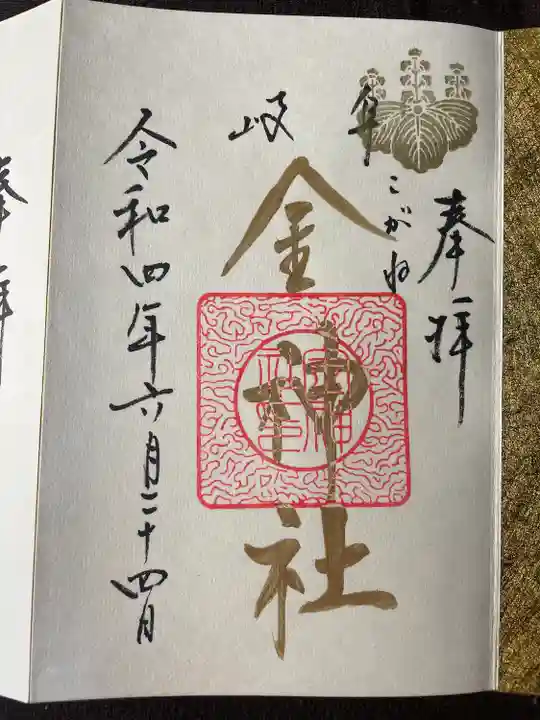 奉拝
岐阜
こがね
金神社
令和四年六月二十四日
奉拝